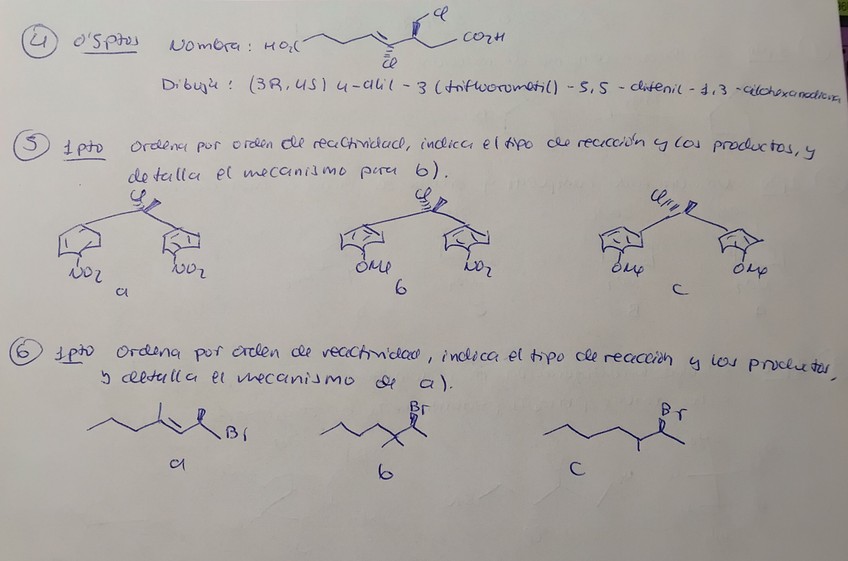 4 0'5ptos Nombra: HO₂C Cl Cl CO₂H
Dibuja: (3R,4S) 4-alil-3(trifluorometil)-5,5-difenil-1,3-ciclohexanodiona
5 1pto Ordena por orden de reactividad, indica el tipo de reacción y los productos, y
detalla el mecanismo para b).
Cl Cl Cl
NO₂ NO₂ OMe NO₂ OMe OMe
a b c
6 1pto Ordena por orden de reactividad, indica el tipo de reacción y los productos,
y detalla el mecanismo de a).
Br Br Br
a b c